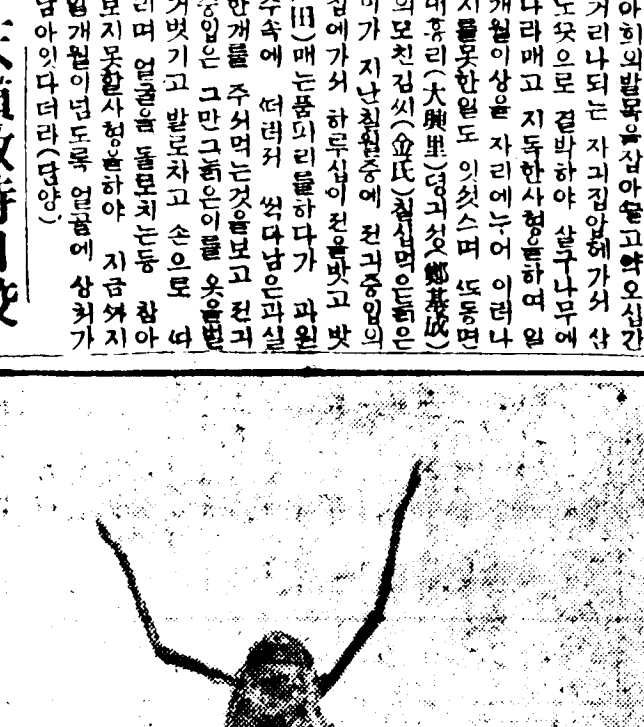 아희의발목을잡아끌고약오십간
거리나되는 자긔집압헤가서 삼
노끗으로 결박하야 살구나무에
다라매고 지독한사형을하여 일
개월이상을 자리에누어 이러나
지를못한일도 잇섯스며 또동면
대흥리(大興里)뎡긔성(鄭基成)
의모친김씨(金氏)칠십먹은늙은
이가 지난칠월중에 전긔중입의
집에가서 하루십이전을밧고 밧
(田)매는품파리를하다가 과원
수속에 떠러저 썩다남은과실
한개를 주서먹는것을보고 전긔
중입은 그만그늙은이를 옷을벌
거벗기고 발로차고 손으로 따
리며 얼굴을 돌로치는등 참아
보지못할사형을하야 지금까지
일개월이넘도록 얼굴에 상처가
남아잇다더라(담양)